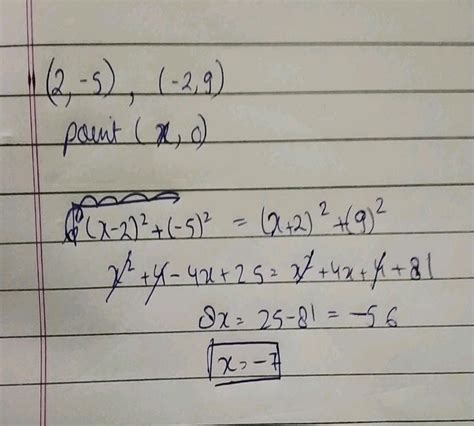 (2,-5) , (-2,9)
point (x,0)
(x-2)² + (-5)² = (x+2)² + (9)²
x² + 4 - 4x + 25 = x² + 4x + 4 + 81
8x = 25-81 = -56
x = -7